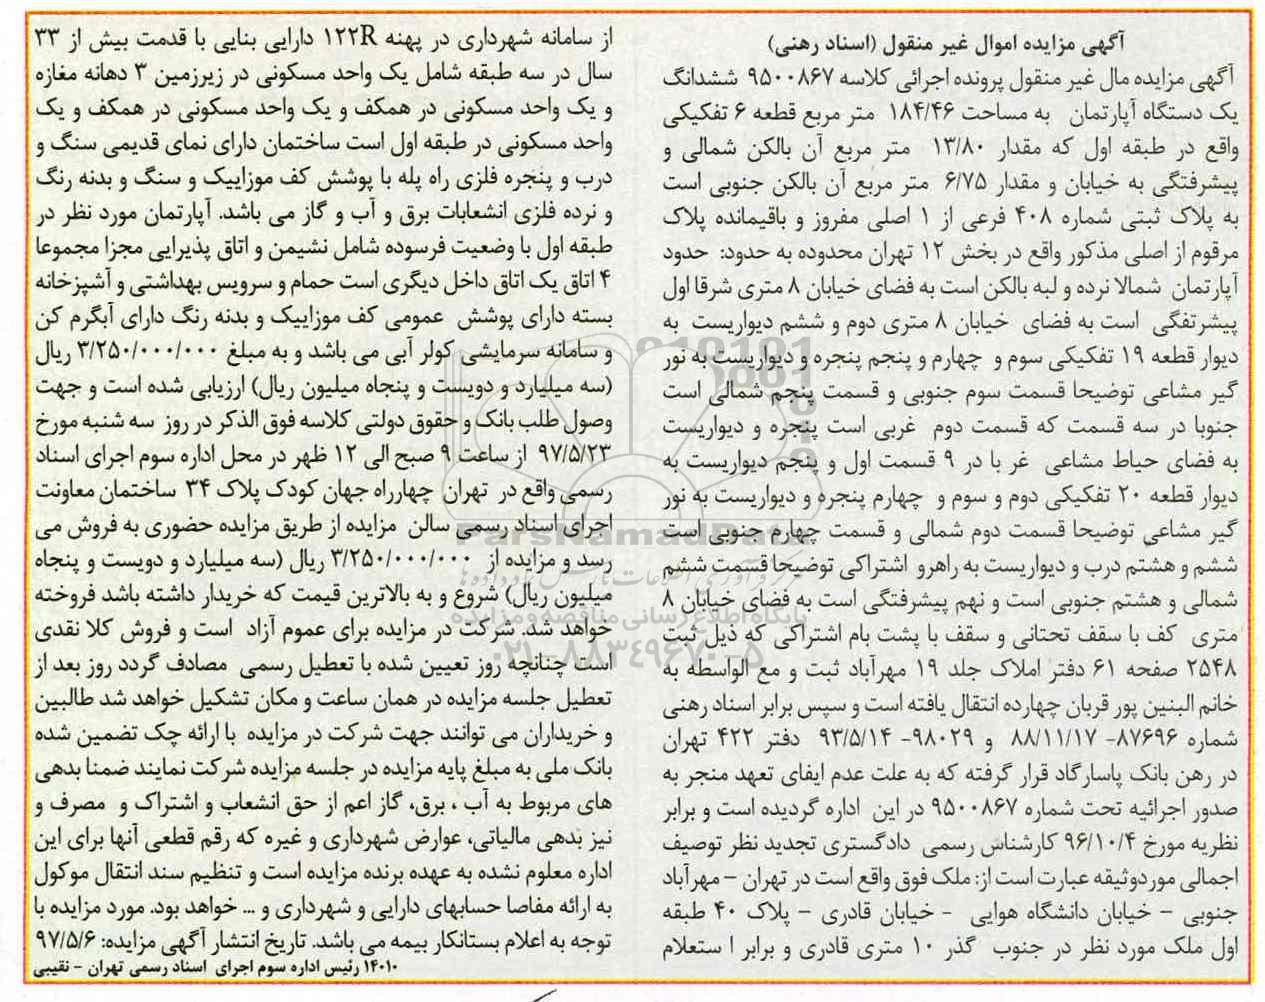 آگهی مزایده اموال غیر منقول (اسناد رهنی)
آگهی مزایده مال غیر منقول پرونده اجرائی کلاسه ۹۵۰۰۸۶۷ ششدانگ
یک دستگاه آپارتمان به مساحت ۱۸۴/۴۶ متر مربع قطعه ۶ تفکیکی
واقع در طبقه اول که مقدار ۱۳/۸۰ متر مربع آن بالکن شمالی و
پیشرفتگی به خیابان و مقدار ۶/۷۵ متر مربع آن بالکن جنوبی است
به پلاک ثبتی شماره ۴۰۸ فرعی از ۱ اصلی مفروز و باقیمانده پلاک
مرقوم از اصلی مذکور واقع در بخش ۱۲ تهران محدوده به حدود: حدود
آپارتمان شمالا نرده و لبه بالکن است به فضای خیابان ۸ متری شرقا اول
پیشرتفگی است به فضای خیابان ۸ متری دوم و ششم دیواریست به
دیوار قطعه ۱۹ تفکیکی سوم و چهارم و پنجم پنجره و دیواریست به نور
گیر مشاعی توضیحا قسمت سوم جنوبی و قسمت پنجم شمالی است
جنوبا در سه قسمت که قسمت دوم غربی است پنجره و دیواریست
به فضای حیاط مشاعی غر با در ۹ قسمت اول و پنجم دیواریست به
دیوار قطعه ۲۰ تفکیکی دوم و سوم و چهارم پنجره و دیواریست به نور
گیر مشاعی توضیحا قسمت دوم شمالی و قسمت چهارم جنوبی است
ششم و هشتم درب و دیواریست به راهرو اشتراکی توضیحا قسمت ششم
شمالی و هشتم جنوبی است و نهم پیشرفتگی است به فضای خیابان ۸
متری کف با سقف تحتانی و سقف با پشت بام اشتراکی که ذیل ثبت
۲۵۴۸ صفحه ۶۱ دفتر املاک جلد ۱۹ مهرآباد ثبت و مع الواسطه به
خانم البنین پور قربان چهارده انتقال یافته است و سپس برابر اسناد رهنی
شماره ۸۷۶۹۶- ۸۸/۱۱/۱۷ و ۹۸۰۲۹- ۹۳/۵/۱۴ دفتر ۴۲۲ تهران
در رهن بانک پاسارگاد قرار گرفته که به علت عدم ایفای تعهد منجر به
صدور اجرائیه تحت شماره ۹۵۰۰۸۶۷ در این اداره گردیده است و برابر
نظریه مورخ ۹۶/۱۰/۴ کارشناس رسمی دادگستری تجدید نظر توصیف
اجمالی موردوثیقه عبارت است از: ملک فوق واقع است در تهران – مهرآباد
جنوبی – خیابان دانشگاه هوایی - خیابان قادری – پلاک ۴۰ طبقه
اول ملک مورد نظر در جنوب گذر ۱۰ متری قادری و برابر ا ستعلام
از سامانه شهرداری در پهنه ۱۲۲R دارایی بنایی با قدمت بیش از ۳۳
سال در سه طبقه شامل یک واحد مسکونی در زیرزمین ۳ دهانه مغازه
و یک واحد مسکونی در همکف و یک واحد مسکونی در همکف و یک
واحد مسکونی در طبقه اول است ساختمان دارای نمای قدیمی سنگ و
درب و پنجره فلزی راه پله با پوشش کف موزاییک و سنگ و بدنه رنگ
و نرده فلزی انشعابات برق و آب و گاز می باشد. آپارتمان مورد نظر در
طبقه اول با وضعیت فرسوده شامل نشیمن و اتاق پذیرایی مجزا مجموعا
۴ اتاق یک اتاق داخل دیگری است حمام و سرویس بهداشتی و آشپزخانه
بسته دارای پوشش عمومی کف موزاییک و بدنه رنگ دارای آبگرم کن
و سامانه سرمایشی کولر آبی می باشد و به مبلغ ۳/۲۵۰/۰۰۰/۰۰۰ ریال
(سه میلیارد و دویست و پنجاه میلیون ریال) ارزیابی شده است و جهت
وصول طلب بانک و حقوق دولتی کلاسه فوق الذکر در روز سه شنبه مورخ
۹۷/۵/۲۳ از ساعت ۹ صبح الی ۱۲ ظهر در محل اداره سوم اجرای اسناد
رسمی واقع در تهران چهارراه جهان کودک پلاک ۳۴ ساختمان معاونت
اجرای اسناد رسمی سالن مزایده از طریق مزایده حضوری به فروش می
رسد و مزایده از ۳/۲۵۰/۰۰۰/۰۰۰ ریال (سه میلیارد و دویست و پنجاه
میلیون ریال) شروع و به بالاترین قیمت که خریدار داشته باشد فروخته
خواهد شد. شرکت در مزایده برای عموم آزاد است و فروش کلا نقدی
است چنانچه روز تعیین شده با تعطیل رسمی مصادف گردد روز بعد از
تعطیل جلسه مزایده در همان ساعت و مکان تشکیل خواهد شد طالبین
و خریداران می توانند جهت شرکت در مزایده با ارائه چک تضمین شده
بانک ملی به مبلغ پایه مزایده در جلسه مزایده شرکت نمایند ضمنا بدهی
های مربوط به آب ، برق، گاز اعم از حق انشعاب و اشتراک و مصرف و
نیز بدهی مالیاتی، عوارض شهرداری و غیره که رقم قطعی آنها برای این
اداره معلوم نشده به عهده برنده مزایده است و تنظیم سند انتقال موکول
به ارائه مفاصا حسابهای دارایی و شهرداری و ... خواهد بود. مورد مزایده با
توجه به اعلام بستانکار بیمه می باشد. تاریخ انتشار آگهی مزایده: ۹۷/۵/۶
۱۴۰۱۰ رئیس اداره سوم اجرای اسناد رسمی تهران – نقیبی
ParsNamadData
پایگاه اطلاع رسانی مناقصه و مزایده
۰۲۱-۸۸۳۴۹۶۷۰-۵